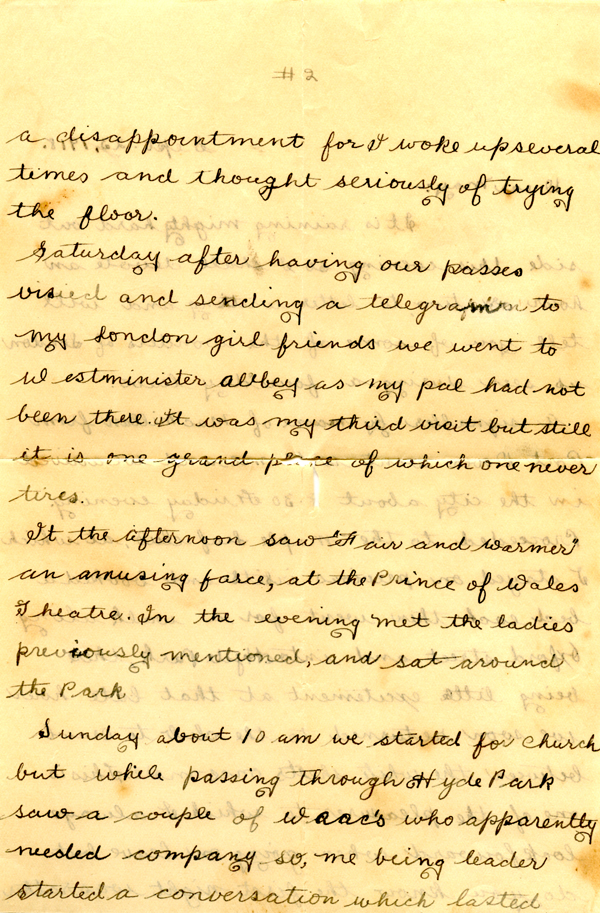 # 2
a disappointment for I woke up several
times and thought seriously of trying
the floor.
Saturday after having our passes
visied and sending a telegram to
my London girl friends we went to
Westminister abbey as my pal had not
been there. It was my third visit but still
it is one grand place of which one never
tires.
It the afternoon saw "Fair and warmer"
an amusing farce, at the Prince of Wales
Theatre. In the evening met the ladies
previously mentioned, and sat around
the Park
Sunday about 10 am we started for church
but while passing through Hyde Park
saw a couple of Waac's who apparently
needed company so, me being leader
started a conversation which lasted